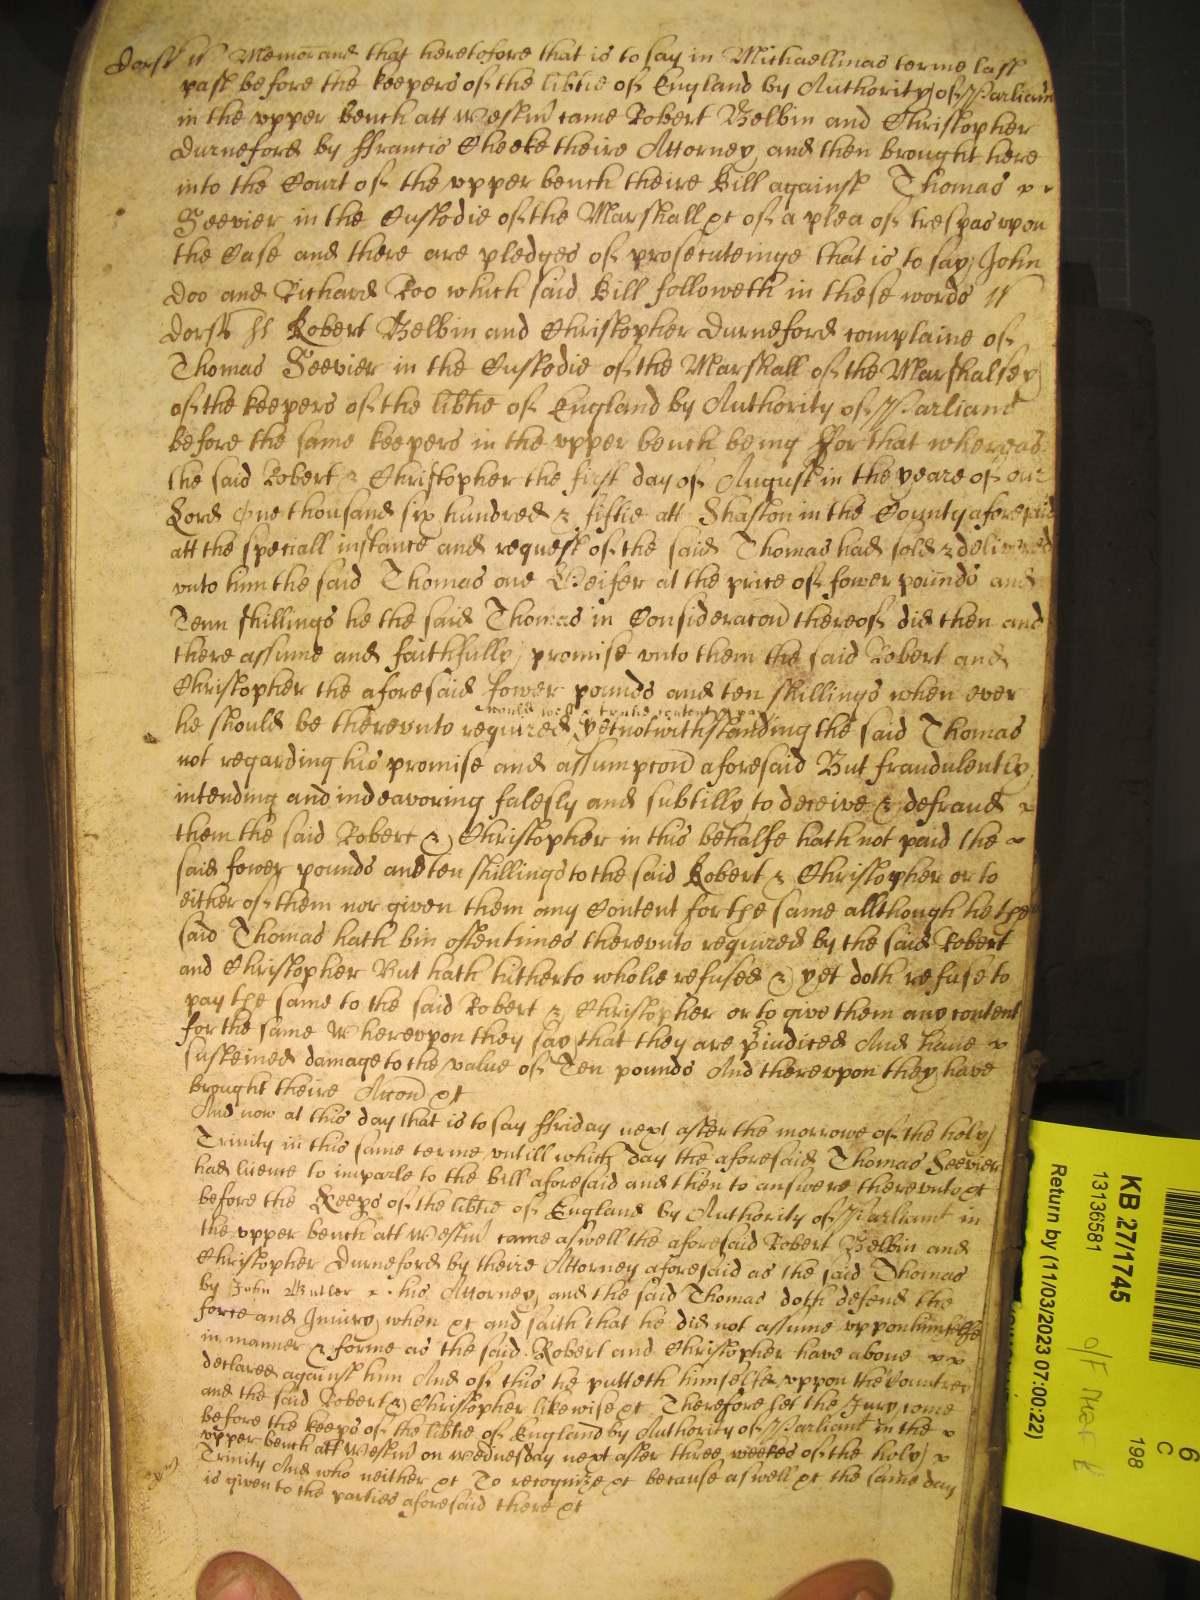 Dorss ss Memorand that heretofore that is to say in Michaellmas terme last
past before the keepers of the libtie of England by Authority of Parliam
in the vpper bench att Westm came Robert Belbin and Christopher
Durneford by ffrancis Cheeke theire Attorney and then brought here
into the Court of the vpper bench theire Bill against Thomas
Seevier in the Custodie of the Marshall &c of a plea of trespas vpon
the Case and there are pledges of prosecuteinge that is to say John
Doo and Richard Roo which said Bill followeth in these words ss
Dorss ss Robert Belbin and Christopher Durneford complaine of
Thomas Seevier in the Custodie of the Marshall of the Marshalsey
of the keepers of the libtie of England by Authority of Parliamt
before the same keepers in the vpper bench being ffor that whereas
the said Robert & Christopher the first day of August in the yeare of our
Lord One thousand six hundred & fiftie att Shaston in the County aforesaid
att the speciall instance and request of the said Thomas had sold & delivered
vnto him the said Thomas one Heifer at the price of fower pounds and
Tenn shillings he the said Thomas in Consideracon thereof did then and
there assume and faithfully promise vnto them the said Robert and
Christopher the aforesaid fower pounds and ten shillings when ever
would well & truelie content & pay
he should be therevnto required yet notwithstanding the said Thomas
not regarding his promise and assumpcon aforesaid But fraudulently
intending and indeavoring falesly and subtilly to deceive & defraud
them the said Robert & Christopher in this behalfe hath not paid the
said fower pounds and ten shillings to the said Robert & Christopher or to
either of them nor given them any Content for the same allthough he the
said Thomas hath bin oftentimes therevnto required by the said Robert
and Christopher But hath hitherto wholie refused & yet doth refuse to
pay the same to the said Robert & Christopher or to give them any content
for the same Wherevpon they say that they are pjudiced And have
susteined damage to the value of Ten pounds And therevpon they have
brought theire Accon &c
And now at this day that is to say ffriday next after the morrowe of the holy
Trinity in this same terme vntill which day the aforesaid Thomas Seevier
had licence to imparle to the bill aforesaid and then to answere therevnto &c
before the Keeps of the libtie of England by Authority of Parliamt in
the vpper bench att Westm came aswell the aforesaid Robert Belbin and
Christopher Durneford by theire Attorney aforesaid as the said Thomas
by John Butler his Attorney and the said Thomas doth defend the
force and Iniury when &c and saith that he did not assume vppon himselfe
in manner & forme as the said Robert and Christopher have above
declared against him And of this he putteth himselfe vppon the Countrey
and the said Robert & Christopher likewise &c Therefore let the Jury come
before the keeps of the libtie of England by Authority of Parliamt in the
vpper bench att Westm on Wednesday next after three weekes of the holy
Trinity And who neither &c To recognize &c because aswell &c the same day
is given to the parties aforesaid there &c
KB 27/1745
13136581
Return by (11/03/2023 07:00:22)
198
6
C